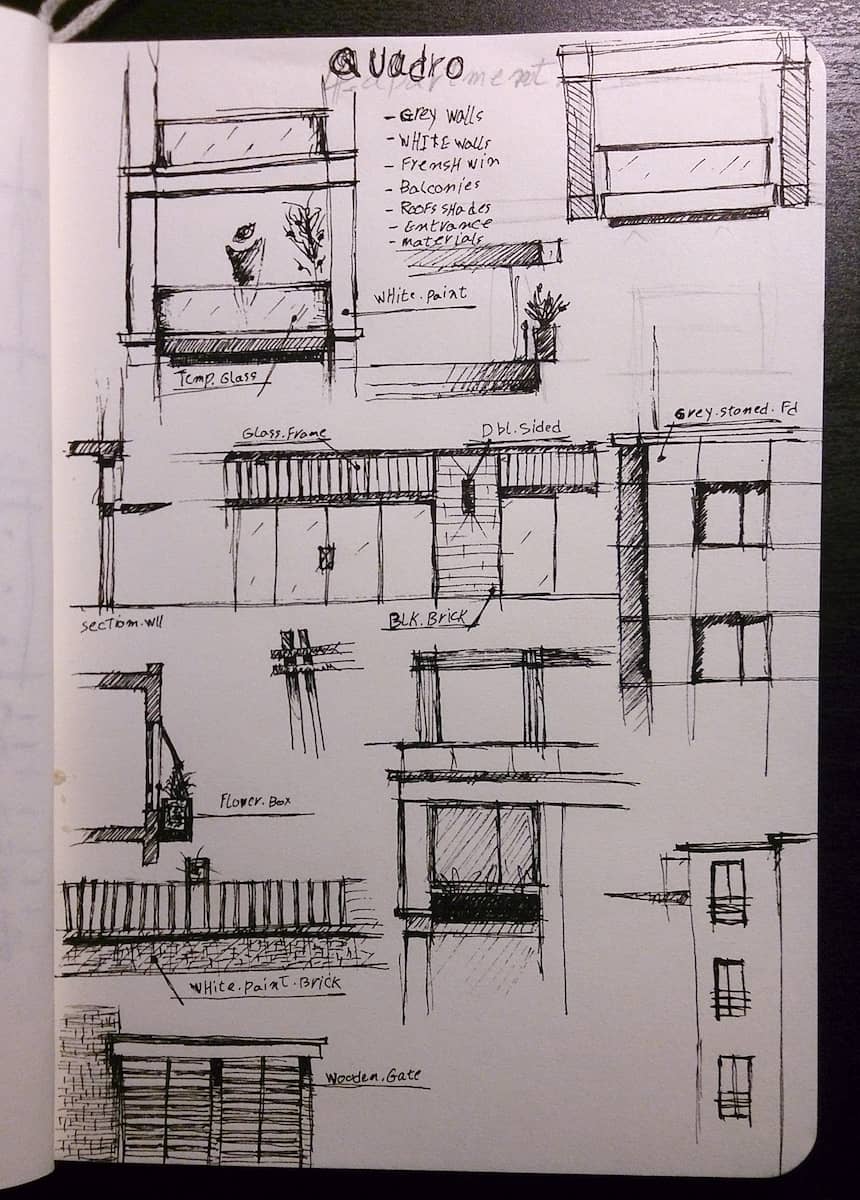 Quadro
Apartment
- Grey walls
- WHITE walls
- Frensh win
- Balconies
- Roofs shades
- Entrance
- materials
WHite.paint
Temp.Glass
Grey.stoned.Fd
Glass.Frame
Dbl.Sided
section.wll
BLK.Brick
Flower.Box
WHite.paint.Brick
Wooden.Gate